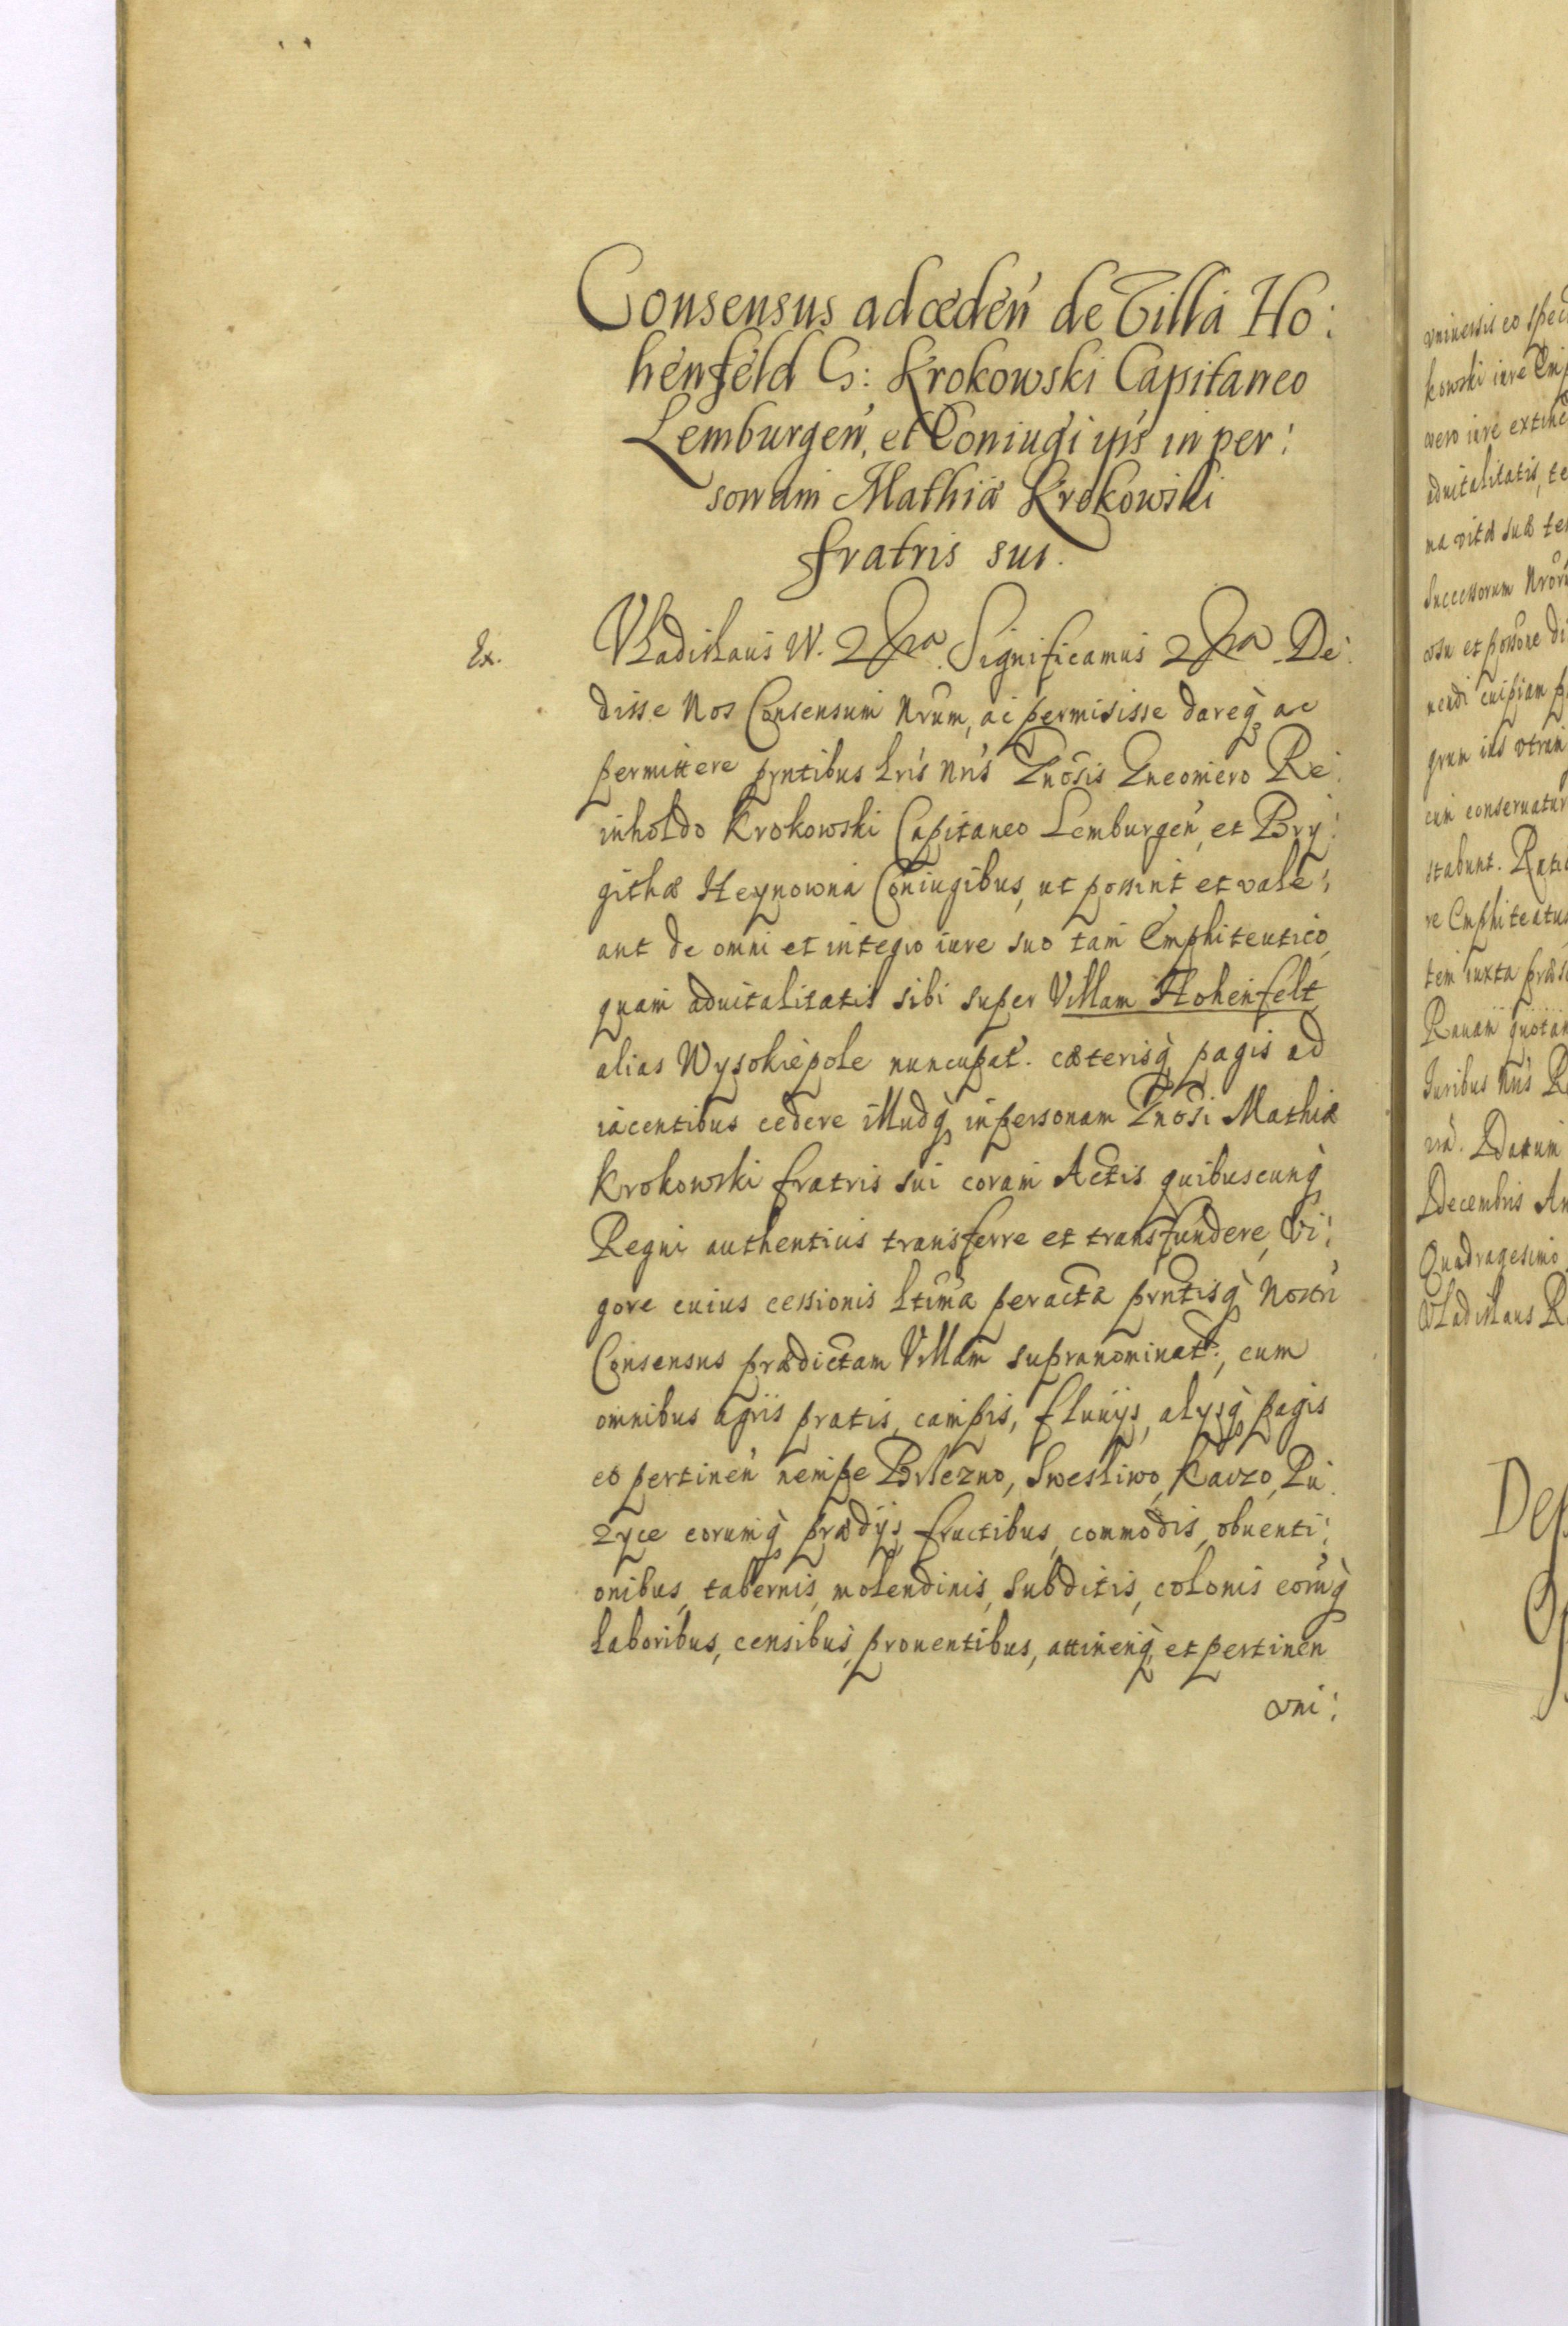 Consensus ad cedeń de Villa Ho:
henfeld G: Krokowski Capitaneo
Lemburgeń, et Coniugi ipś in per:
sonam Mathiæ Krokowski
fratris sui.
Ex.
Vladislaus IV. Significamus De:
disse Nos Consensum Nrum, ac permisisse dareq ac
permittere prntibus Lris Nris Gnosis Gneomero Re:
inholdo Krokowski Capitaneo Lemburgeń, et Bry:
githæ Heynowna Coniugibus, ut possint et vale:
ant de omni et integro iure suo tam Emphiteutico,
quam aduitalitatis sibi super Villam Hohenfelt
alias Wysokiepole nuncupat. cæterisq pagis ad
iacentibus cedere illudq in personam Gnosi Mathiæ
Krokowski fratris sui coram Actis quibuscunq
Regni authenticis transferre et transfundere, Vi:
gore cuius cessionis Ltima peracta prntisq Nostri
Consensus prædictam Villam supranominat:, cum
omnibus agris pratis, campis, fluuijs, alysq pagis
eo pertineń nempe Brlezno, Swesliwo, Kawzo, Pu:
zyce eorumq prædijs, fructibus, commodis, obuenti:
onibus, tabernis, molendinis, subditis, colonis eorūq
laboribus, censibus, prouentibus, attinenq, et pertinen
vni:
vniuersis eo spec
kowski iure Emp
vero iure extinc
aduitalitatis, te
na vitæ suæ te
Successorum Nror
nendi cuipiam p
grum ius vtrin
cum conseruatur
stabunt. Ratio
re Emphiteutic
tem iuxta præs
Rauam quotan
Iuribus Nris R
Datum
Decembris An
Quadragesimo
Vladislaus R